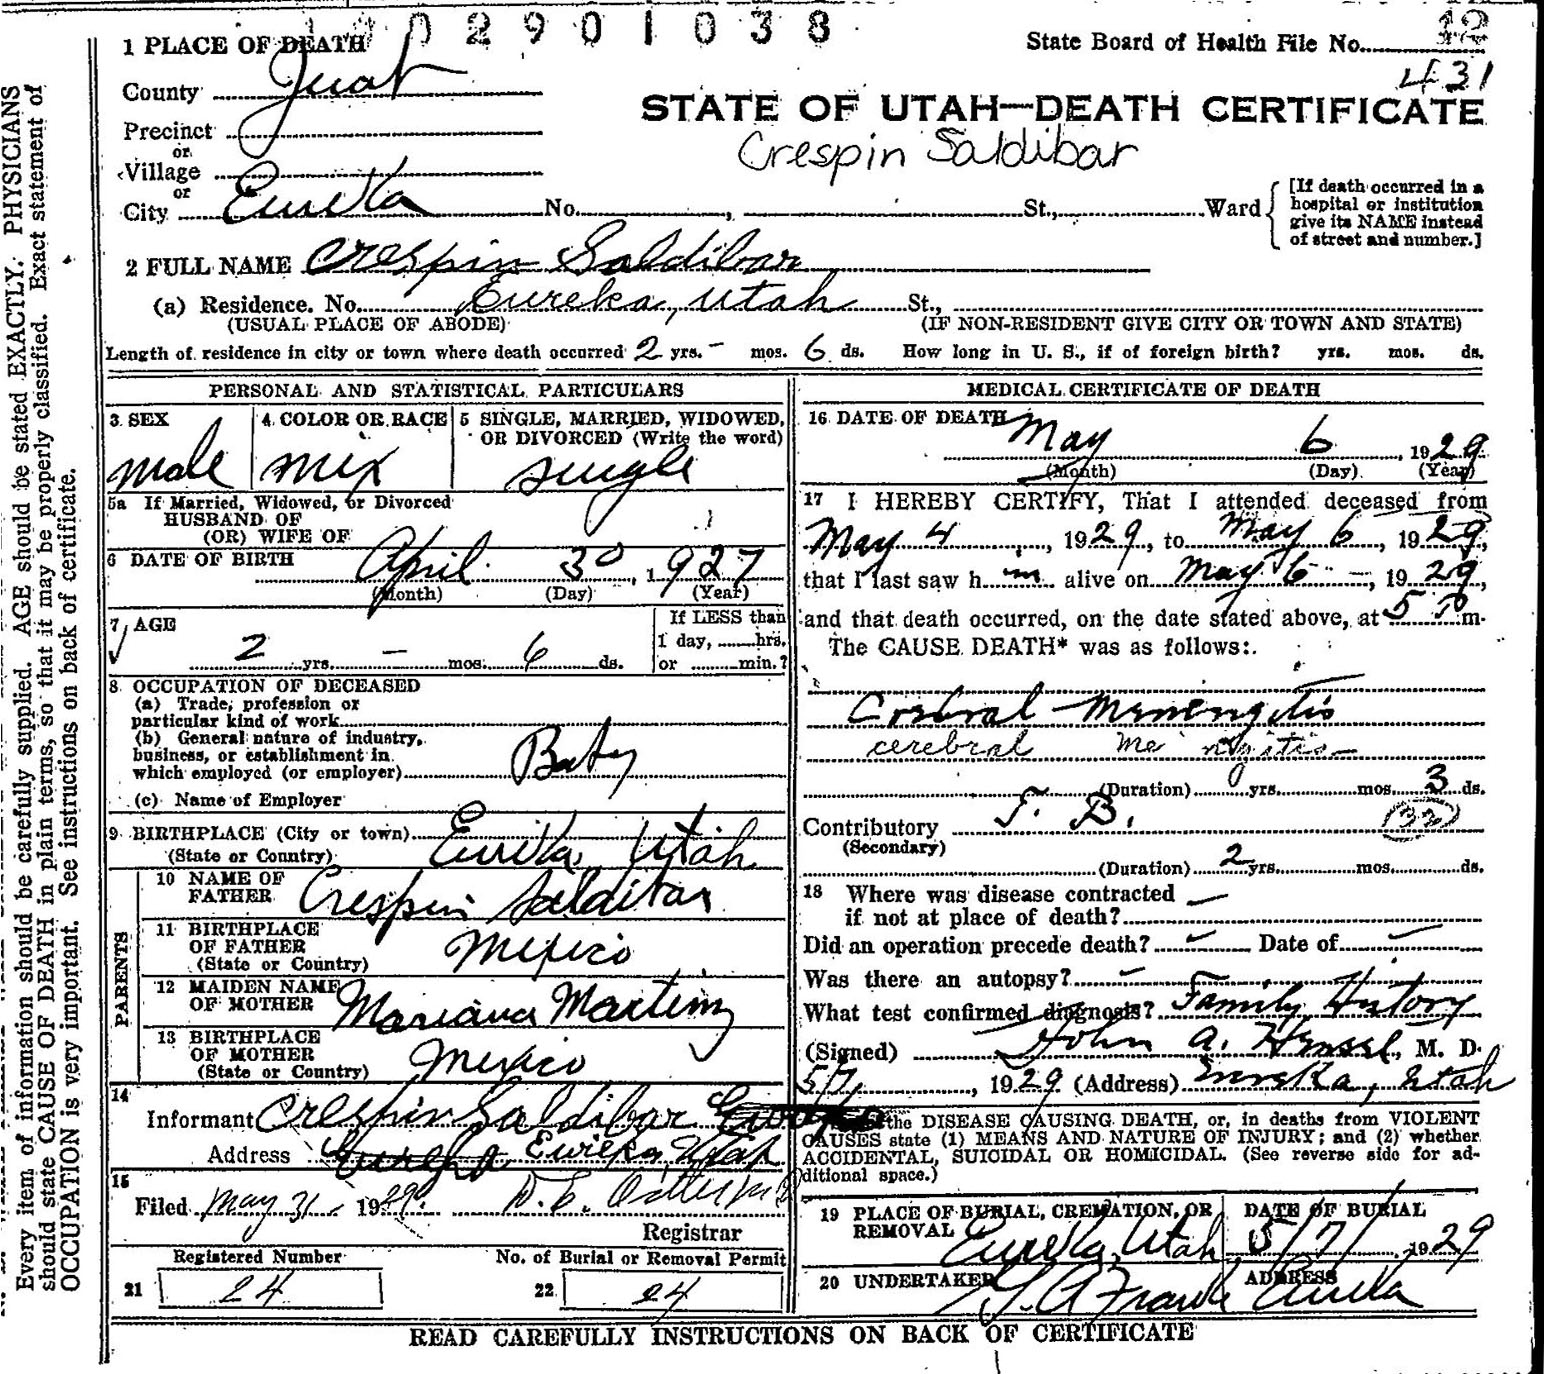 02901038
1 PLACE OF DEATH
State Board of Health File No. 12
431
County Juab
STATE OF UTAH—DEATH CERTIFICATE
Precinct
or
Crespin Saldibar
Village
or
City Eureka No. , St., Ward
[If death occurred in a
hospital or institution
give its NAME instead
of street and number.]
2 FULL NAME Crespin Saldibar
(a) Residence. No. Eureka, Utah St.,
(USUAL PLACE OF ABODE) (IF NON-RESIDENT GIVE CITY OR TOWN AND STATE)
Length of residence in city or town where death occurred 2 yrs. - mos. 6 ds. How long in U. S., if of foreign birth? yrs. mos. ds.
PERSONAL AND STATISTICAL PARTICULARS
3 SEX 4 COLOR OR RACE 5 SINGLE, MARRIED, WIDOWED,
OR DIVORCED (Write the word)
Male Mex Single
5a If Married, Widowed, or Divorced
HUSBAND OF
(OR) WIFE OF
6 DATE OF BIRTH April 30, 1927
(Month) (Day) (Year)
7 AGE If LESS than
2 yrs. — mos. 6 ds. 1 day, hrs.
or min.?
8 OCCUPATION OF DECEASED
(a) Trade, profession or
particular kind of work
(b) General nature of industry,
business, or establishment in
which employed (or employer) Baby
(c) Name of Employer
9 BIRTHPLACE (City or town) Eureka, Utah
(State or Country)
PARENTS
10 NAME OF
FATHER Crespin Saldibar
11 BIRTHPLACE
OF FATHER Mexico
(State or Country)
12 MAIDEN NAME
OF MOTHER Mariana Martinez
13 BIRTHPLACE
OF MOTHER Mexico
(State or Country)
14
Informant Crespin Saldibar
Address Eureka, Utah
15
Filed May 31 1929
Registrar
Registered Number No. of Burial or Removal Permit
21 24 22 24
MEDICAL CERTIFICATE OF DEATH
16 DATE OF DEATH May 6, 1929
(Month) (Day) (Year)
17 I HEREBY CERTIFY, That I attended deceased from
May 4, 1929, to May 6, 1929,
that I last saw h im alive on May 6 —, 1929,
and that death occurred, on the date stated above, at 5 P m.
The CAUSE DEATH* was as follows:
Cerebral Meningitis
cerebral meningitis
(Duration) yrs. mos. 3 ds.
Contributory T. B. 32
(Secondary)
(Duration) 2 yrs. mos. ds.
18 Where was disease contracted —
if not at place of death?
Did an operation precede death? — Date of —
Was there an autopsy? —
What test confirmed diagnosis? Family History
(Signed) John A. Hensel, M. D.
5/7, 1929 (Address) Eureka, Utah
the DISEASE CAUSING DEATH, or, in deaths from VIOLENT
CAUSES state (1) MEANS AND NATURE OF INJURY; and (2) whether
ACCIDENTAL, SUICIDAL OR HOMICIDAL. (See reverse side for ad-
ditional space.)
19 PLACE OF BURIAL, CREMATION, OR
REMOVAL Eureka, Utah
DATE OF BURIAL
5/7/ 1929
20 UNDERTAKER ADDRESS
Frank Eureka
READ CAREFULLY INSTRUCTIONS ON BACK OF CERTIFICATE
Every item of information should be carefully supplied. AGE should be stated EXACTLY. PHYSICIANS
should state CAUSE OF DEATH in plain terms, so that it may be properly classified. Exact statement of
OCCUPATION is very important. See instructions on back of certificate.